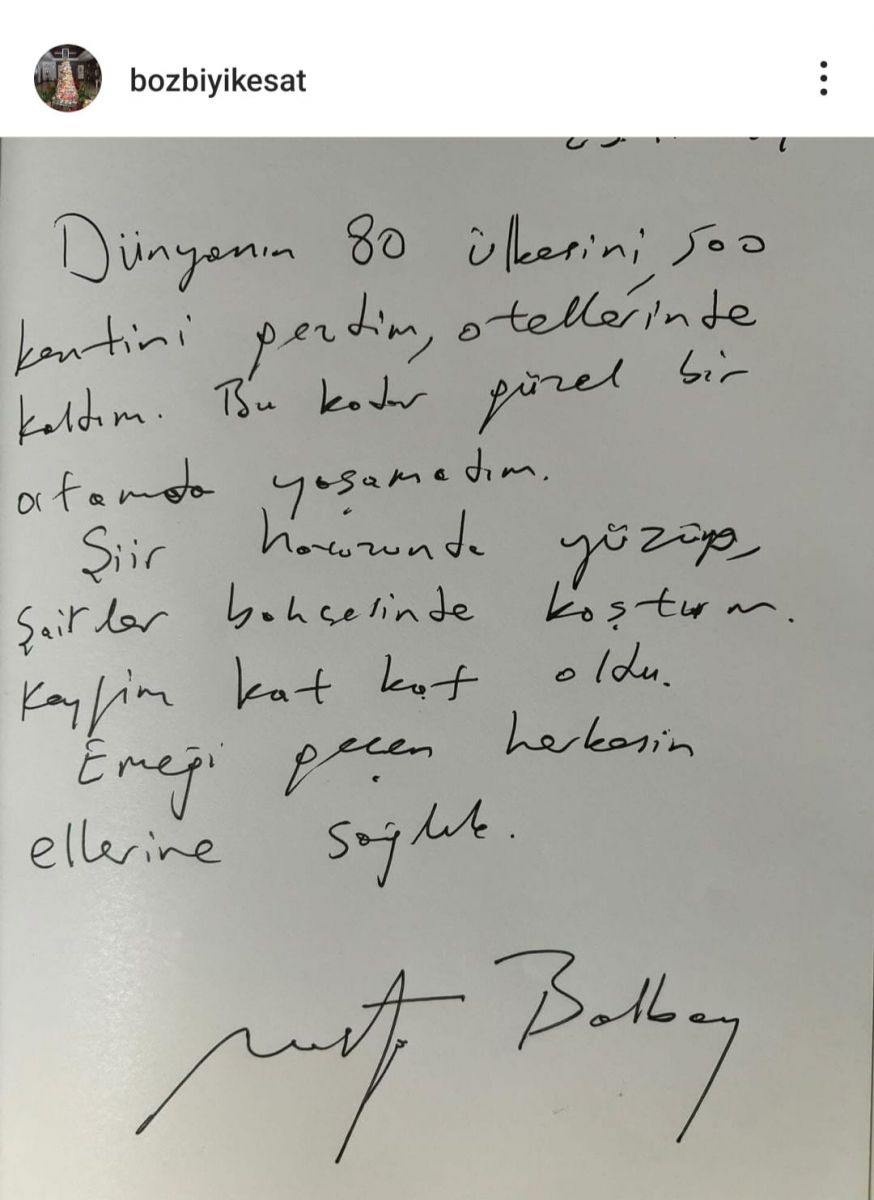 bozbiyikesat
Dünyanın 80 ülkesini, 500
kentini gezdim, otellerinde
kaldım. Bu kadar güzel bir
ortamda yaşamadım.
Şiir havuzunda yüzüp,
Şairler bahçesinde koştum.
Keyfim kat kat oldu.
Emeği geçen herkesin
ellerine sağlık.
Balbay